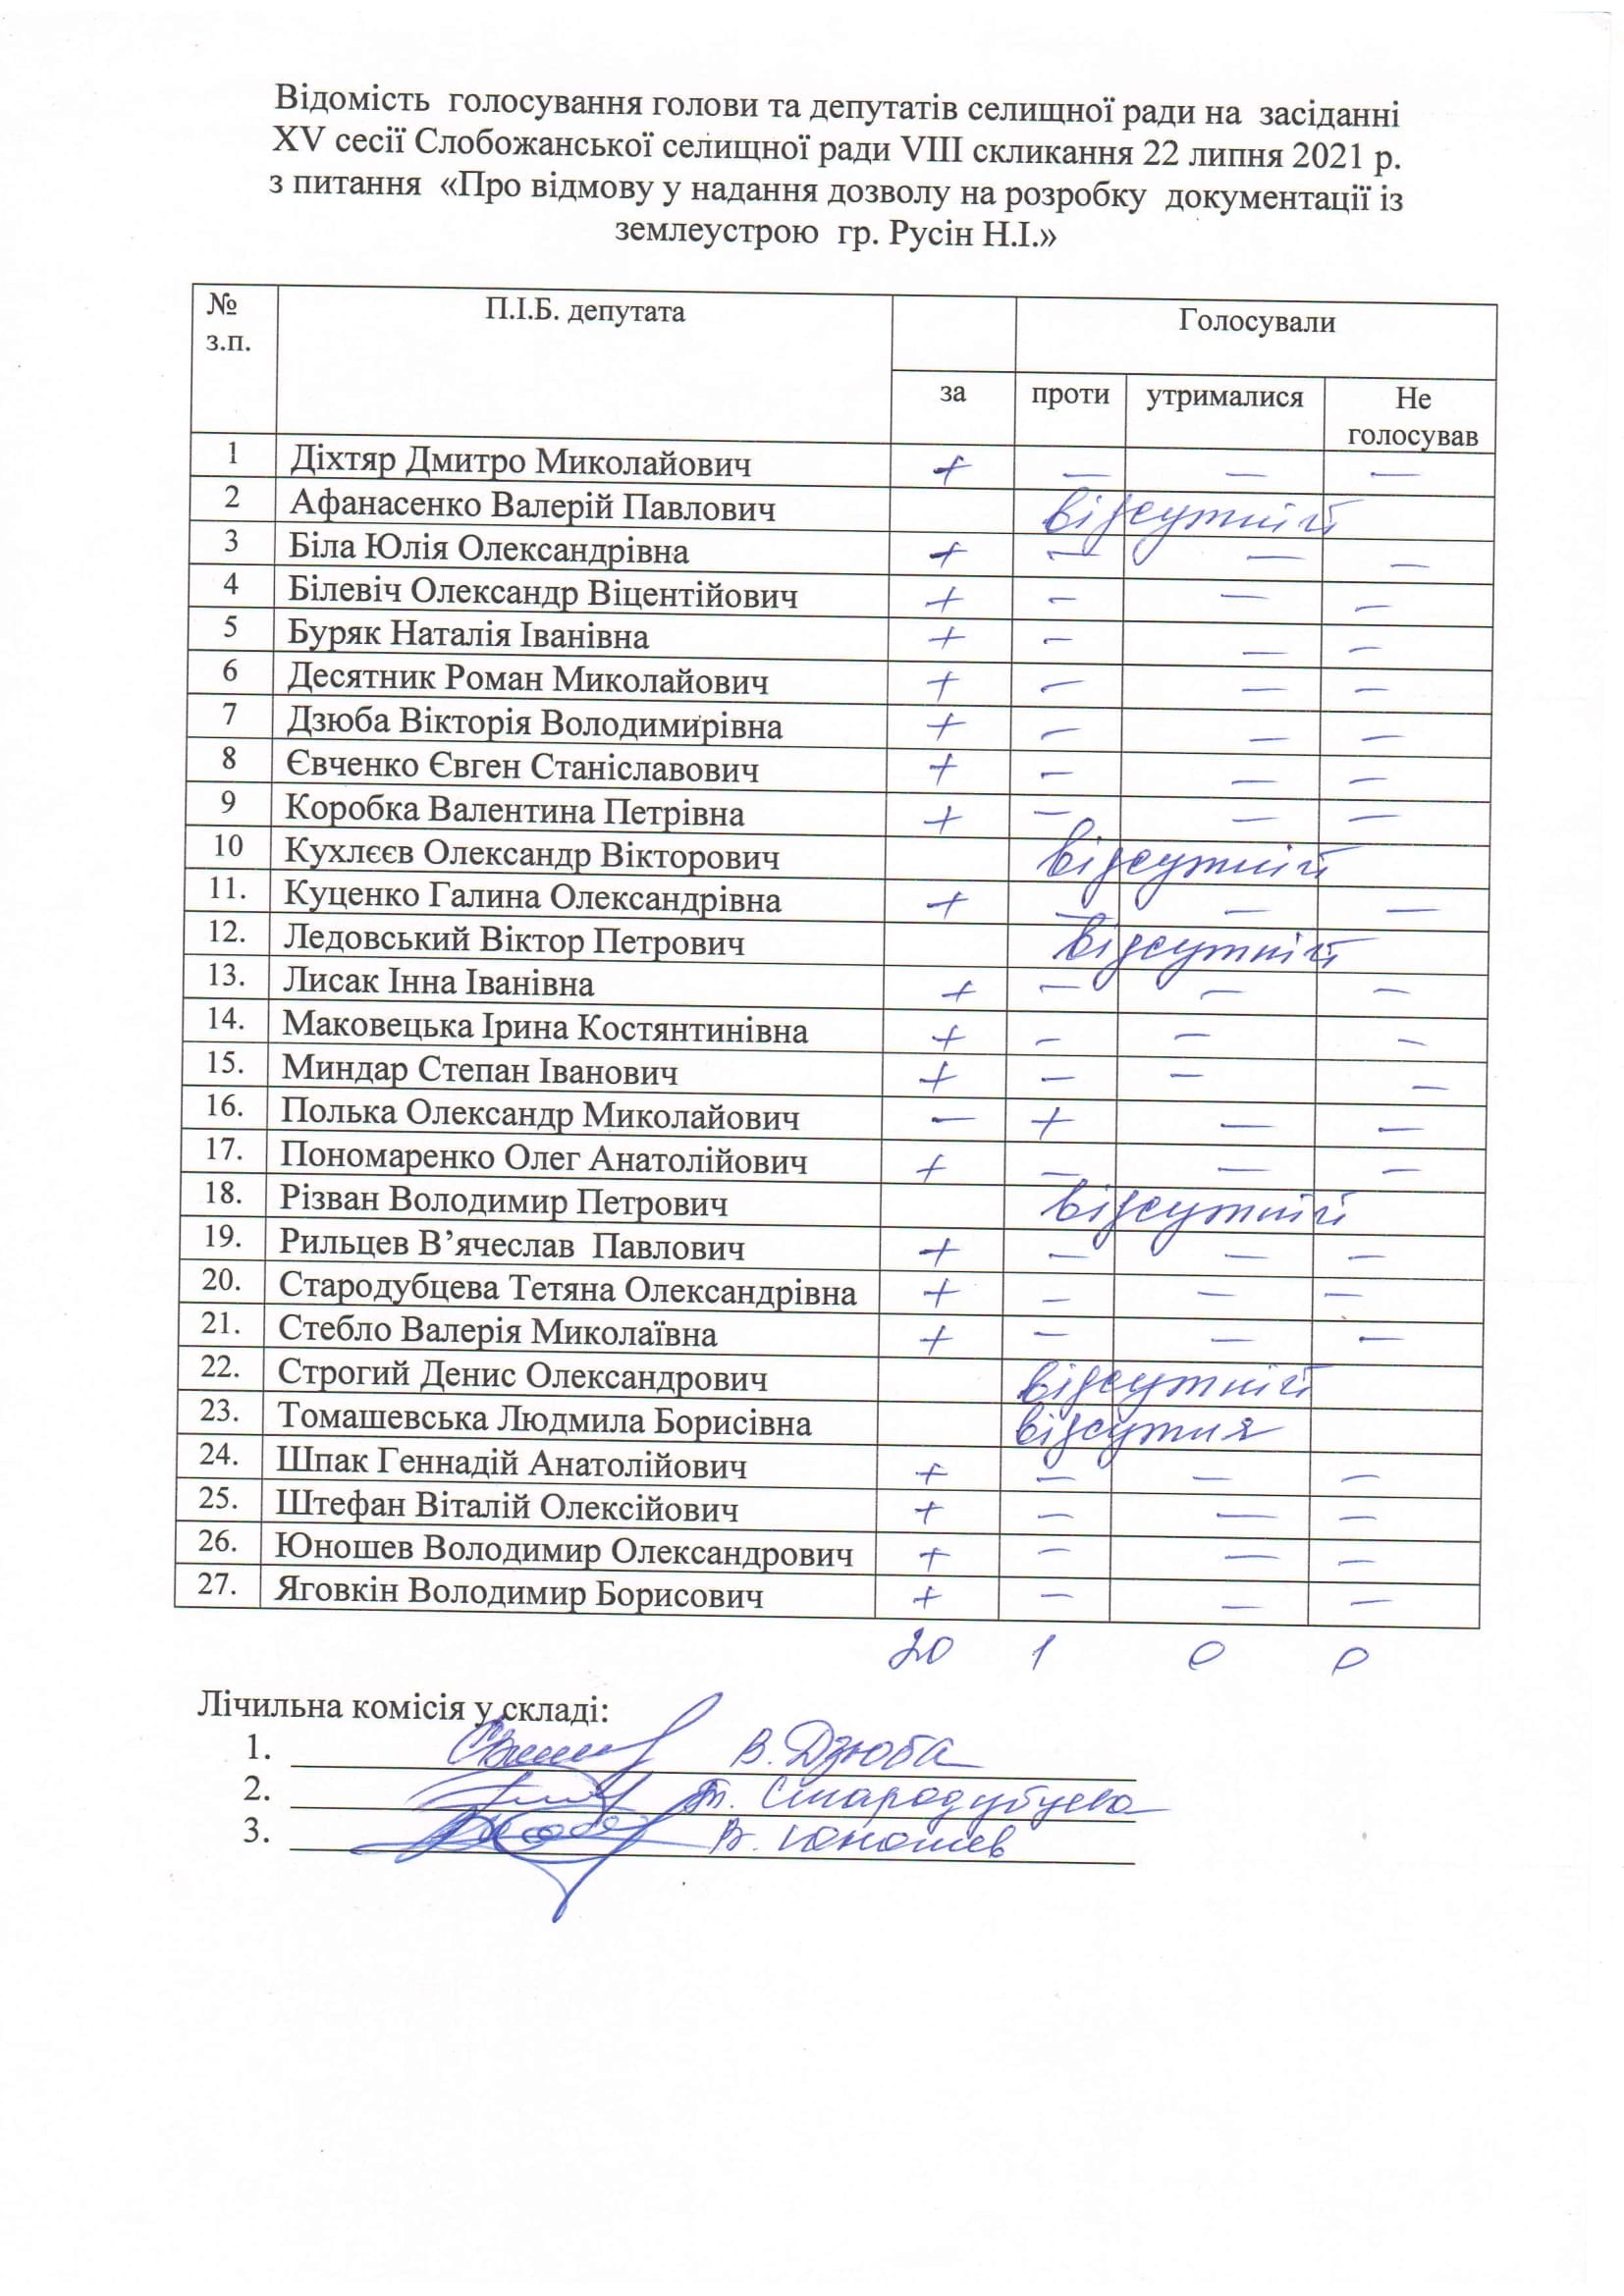 Відомість голосування голови та депутатів селищної ради на засіданні
XV сесії Слобожанської селищної ради VIII скликання 22 липня 2021 р.
з питання «Про відмову у надання дозволу на розробку документації із
землеустрою гр. Русін Н.І.»
№ з.п. П.І.Б. депутата Голосували
за проти утрималися Не голосував
1 Діхтяр Дмитро Миколайович + — — —
2 Афанасенко Валерій Павлович відсутній
3 Біла Юлія Олександрівна + — — —
4 Білевіч Олександр Віцентійович + — — —
5 Буряк Наталія Іванівна + — — —
6 Десятник Роман Миколайович + — — —
7 Дзюба Вікторія Володимирівна + — — —
8 Євченко Євген Станіславович + — — —
9 Коробка Валентина Петрівна + — — —
10 Кухлєєв Олександр Вікторович відсутній
11. Куценко Галина Олександрівна + — — —
12. Ледовський Віктор Петрович відсутній
13. Лисак Інна Іванівна + — — —
14. Маковецька Ірина Костянтинівна + — — —
15. Миндар Степан Іванович + — — —
16. Полька Олександр Миколайович — + — —
17. Пономаренко Олег Анатолійович + — — —
18. Різван Володимир Петрович відсутній
19. Рильцев В’ячеслав Павлович + — — —
20. Стародубцева Тетяна Олександрівна + — — —
21. Стебло Валерія Миколаївна + — — —
22. Строгий Денис Олександрович відсутній
23. Томашевська Людмила Борисівна відсутня
24. Шпак Геннадій Анатолійович + — — —
25. Штефан Віталій Олексійович + — — —
26. Юношев Володимир Олександрович + — — —
27. Яговкін Володимир Борисович + — — —
20 1 0 0
Лічильна комісія у складі:
1. В. Дзюба
2. Т. Стародубцева
3. В. Юношев